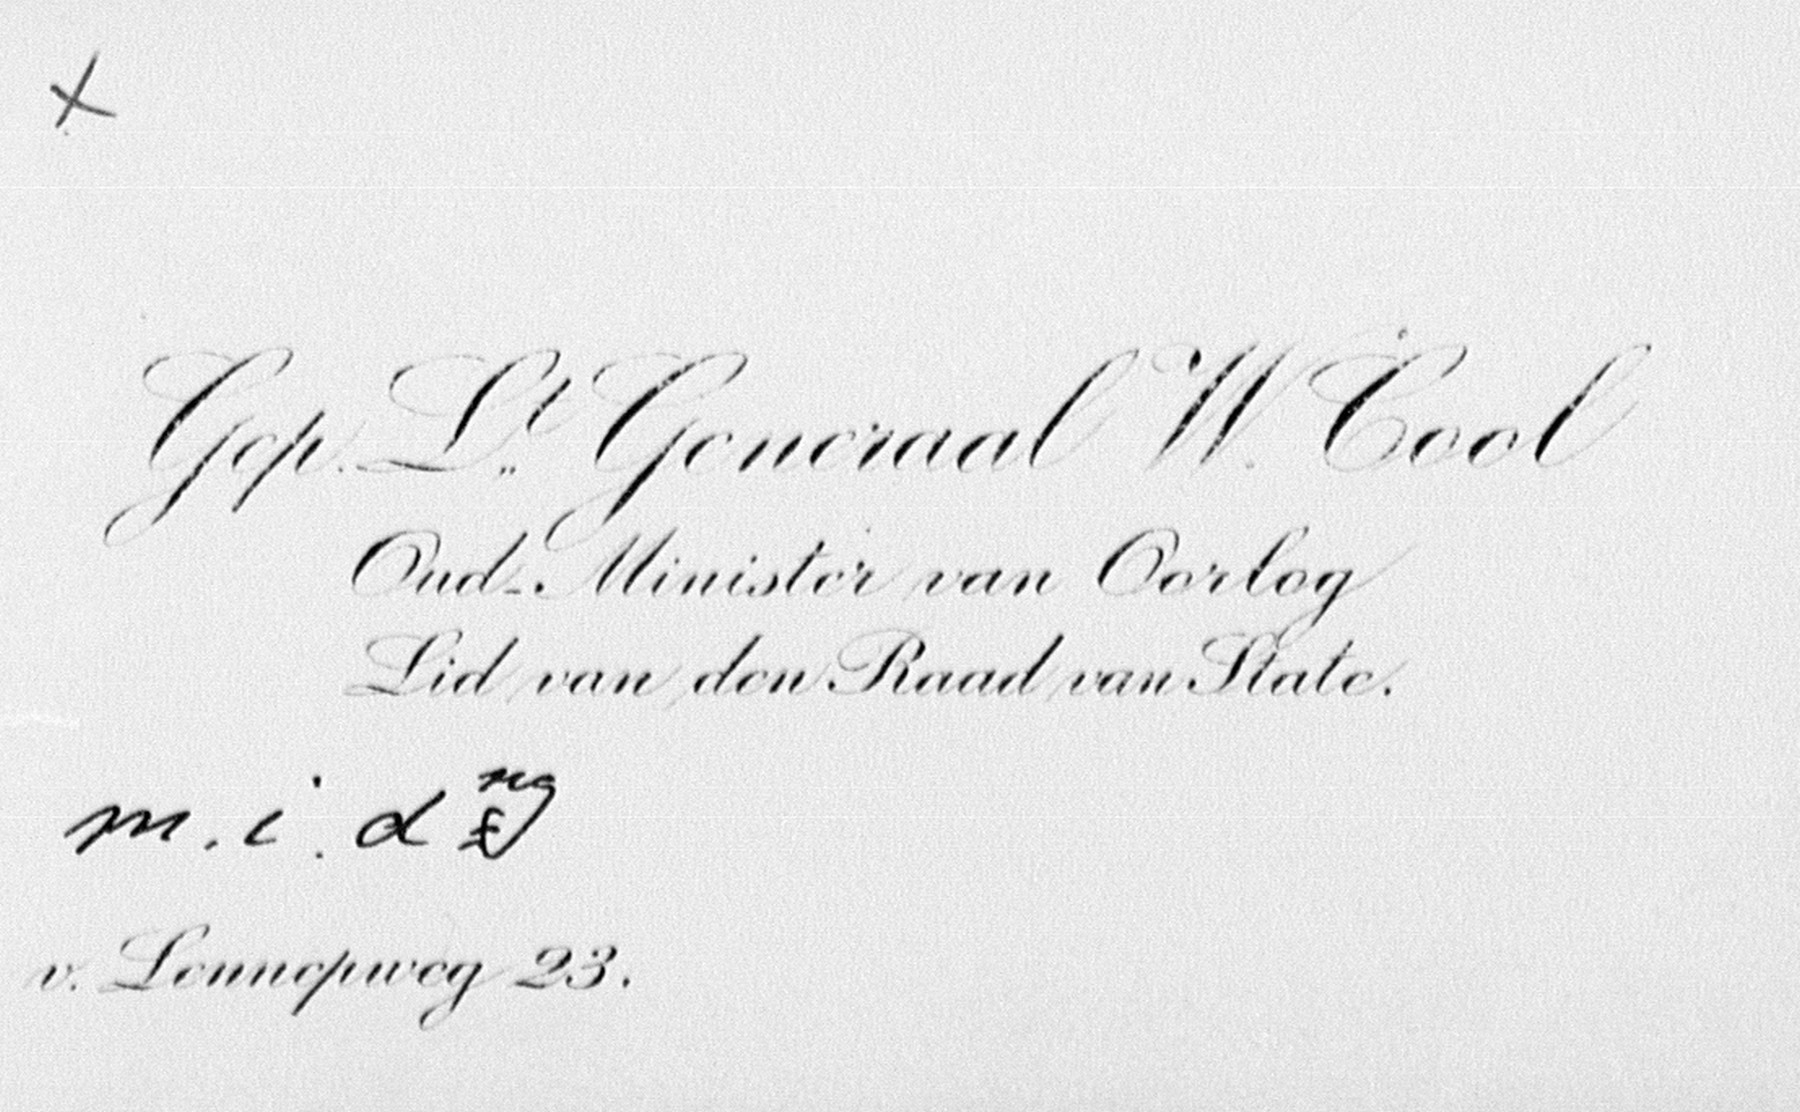 Gep. Lt. Generaal W. Cool
Oud-Minister van Oorlog
Lid van den Raad van State.
m. i. d
v. Lennepweg 23.